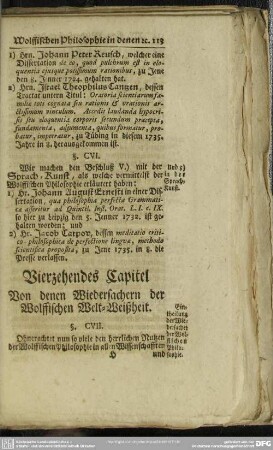 Wolffischen Philosophie in denen ec. 113
1) Hrn. Johann Peter Reusch, welcher eine
Dissertation de eo, quod pulchrum est in elo-
quentia ejusque potissimum rationibus, zu Jene
den 8. Jenner 1724. gehalten hat.
2) Hrn. Israel Theophilus Canzen, dessen
Tractat unter Titul: Oratoria scientiarum fa-
milia toti cognata seu rationis & orationis ar-
ctissimum vinculum. Accedit laudanda hypocri-
sis seu eloquentia corporis secundum praecepta,
fundamenta, argumenta, quibus formatur, pro-
batur, imperatur, zu Tübing in diesem 1735.
Jahre in 8. herausgekommen ist.
§. CVI.
Wir machen den Beschluß V.) mit der
Sprach-Kunst, als welche vermittelst der
Wolffischen Philosophie erläutert haben:
und 5)
in der
Sprach-
Kunst.
1) Hr. Johann August Ernesti in einer Dis-
sertation, qua philosophia perfecta Grammati-
ca asseritur ad Quintil. Inst. Orat. L. I. c. IX.
so hier zu Leipzig den 5. Jenner 1732. ist ge-
halten worden; und
2) Hr. Jacob Carpov, dessen meditatio criti-
co-philosophica de perfectione linguæ, methodo
scientifica proposita, zu Jene 1735. in 8. die
Presse verlassen.
Vierzehendes Capitel
Von denen Wiedersachern der
Wolffischen Welt-Weißheit.
§. CVII.
Ein-
theilung
der Wie-
dersacher
der Wol-
ffischen
Philo-
sophie.
Ohnerachtet nun so viele den herrlichen Nutzen
der Wolffischen Philosophie in allen Wissenschafften
H und